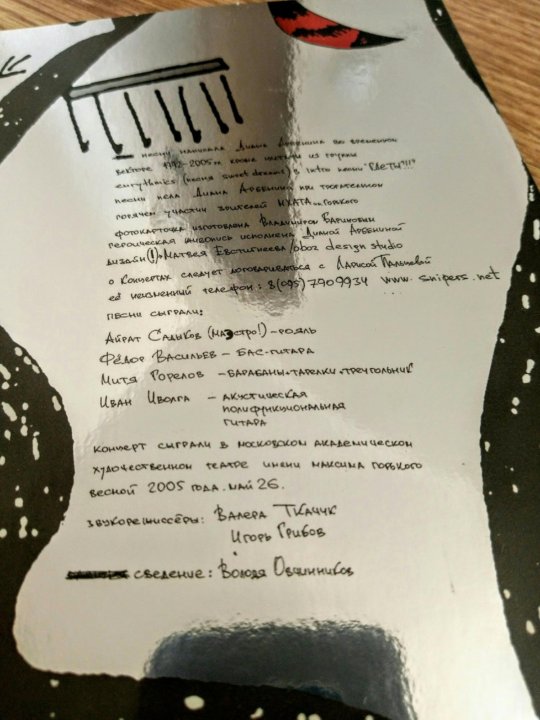 песни написала Диана Арбенина во временном
векторе 1992-2005гг кроме цитаты из группы
eurythmics (песня sweet dreams) в intro песни "ГДЕТЫ!!!"
песни пела Диана Арбенина при трогательном
горячем участии зрителей МХАТа им. Горького
фотокарточка изготовлена Владимиром
героическая живопись исполнена Дианой Арбениной
дизайн(!) Матвея Евстигнеева/oboz design studio
о концертах следует договариваться с Ларисой Пальцевой
её неизменный телефон: 8(095)7909934 www.snipers.net
песни сыграли:
Айрат Садыков (маэстро!) – рояль
Фёдор Васильев – бас-гитара
Митя Горелов – барабаны+тарелки+треугольник
Иван Иволга – акустическая
полифункциональная
гитара
концерт сыграли в московском академическом
художественном театре имени максима горького
весной 2005 года. май 26.
звукорежиссёры: Валера Ткачук
Игорь Грибов
сведение: Володя Овчинников